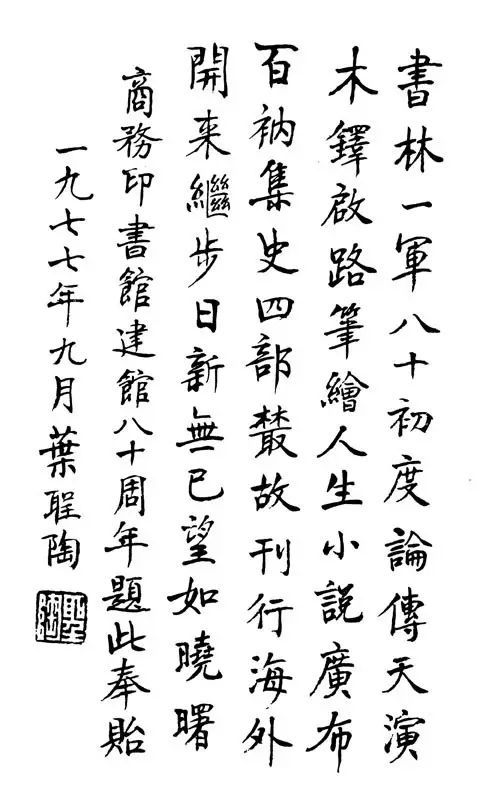 書林一軍八十初度論傳天演
木鐸啟路筆繪人生小說廣布
百衲集史四部叢故刊行海外
開来繼步日新無已望如曉曙
商務印書館建館八十周年題此奉貽
一九七七年九月葉聖陶
聖陶